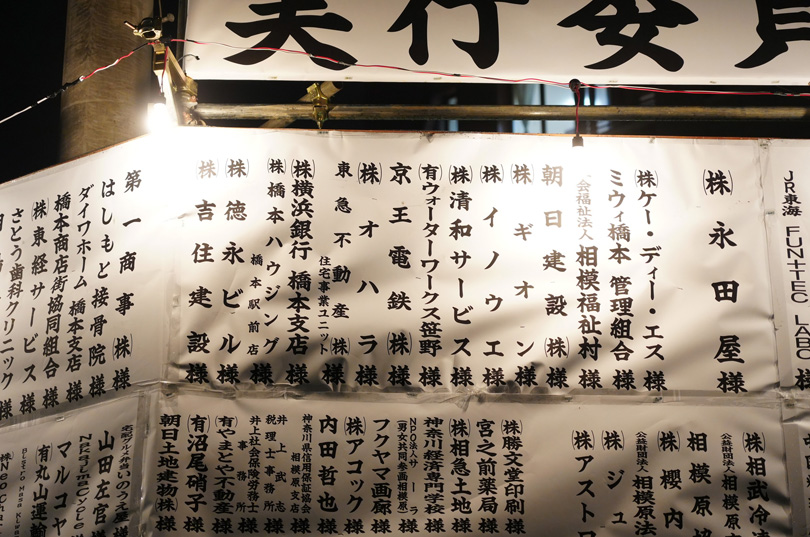 実行委員
JR東海 FUN+TEC LABO 様
㈱永田屋様
㈱ケー・ディー・エス様
ミウィ橋本 管理組合様
社会福祉法人 相模福祉村様
朝日建設㈱様
㈱ギオン様
㈱イノウエ様
㈱清和サービス様
㈲ウォーターワークス笹野様
京王電鉄㈱様
㈱オハラ様
東急不動産㈱ 住宅事業ユニット様
㈱横浜銀行 橋本支店様
㈱橋本ハウジング 橋本駅前店様
㈱徳永ビル様
㈱吉住建設様
第一商事㈱様
はしもと接骨院様
ダイワホーム 橋本支店様
橋本商店街協同組合様
㈱東経サービス様
さとう歯科クリニック様
㈱相武冷
公益財団法人 相模原市
相模原協
㈱櫻内
公益財団法人 相模原法
㈱ジュ
㈱アストロ
㈱勝文堂印刷様
宮之前薬局様
㈱相急土地様
神奈川経済専門学校様
NPO法人サーラ (男女共同参画相模原)様
フクヤマ画廊様
㈱アコック様
内田哲也様
神奈川県信用保証協会 相模原支店様
井上武志 税理士事務所 井上社会保険労務士事務所様
㈲やまとや不動産様
㈲沼尾硝子様
朝日土地建物㈱様
宅配グルメ弁当いのうえ屋様
山田左官様
NakajimaCycle様
マルコヤ
㈲丸山運輸
Bistro Masa
㈱Neo